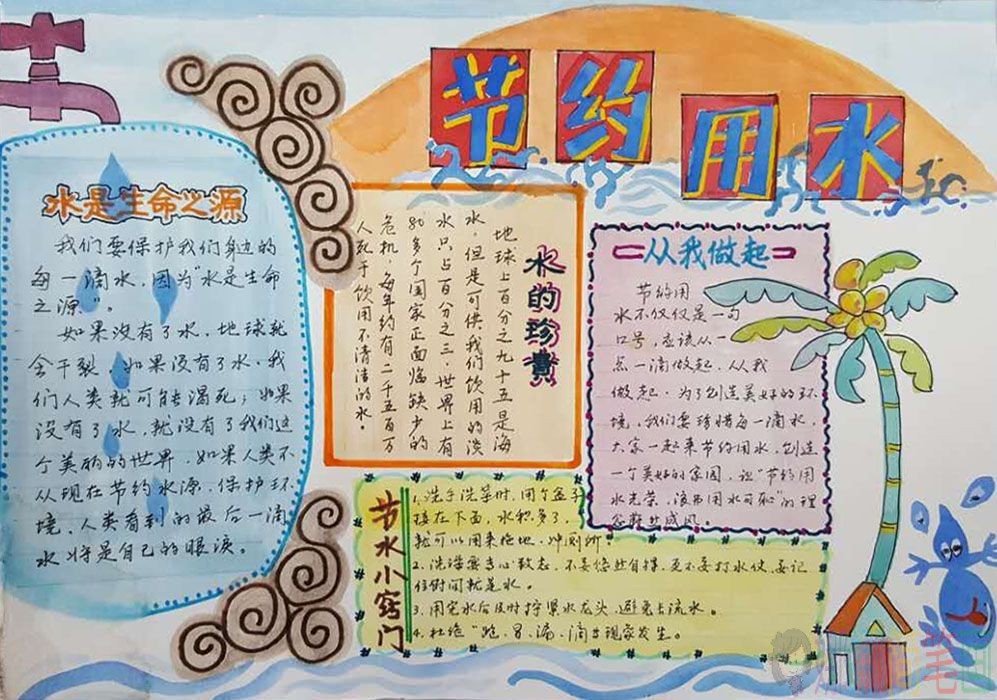 节约用水
水是生命之源
我们要保护我们身边的
每一滴水，因为“水是生命
之源”。
如果没有了水，地球就
会干裂，如果没有了水，我
们人类就可能渴死；如果
没有了水，就没有了我们这
个美丽的世界，如果人类不
从现在节约水源，保护环
境，人类看到的最后一滴
水将是自己的眼泪。
水的珍贵
地球上百分之九十五是海
水，但是可供我们饮用的淡
水只占百分之三，世界上有
80多个国家正面临缺少的
危机，每年约有二千五百万
人死于饮用不清洁的水。
从我做起
节约用
水不仅仅是一句
口号，应该从一
点一滴做起，从我
做起，为了创造美好的环
境，我们要珍惜每一滴水，
大家一起来节约用水，创造
一个美好的家园，让“节约用
水光荣，浪费用水可耻”的理
念蔚然成风。
节水小窍门
1.洗手洗菜时，用个盆子
接在下面，水积多了，
就可以用来拖地、冲厕所。
2.洗澡要专心致志，不要悠然自得，更不要打水仗，要记
住时间就是水。
3.用完水后及时拧紧水龙头，避免长流水。
4.杜绝“跑、冒、漏、滴”等现象发生。